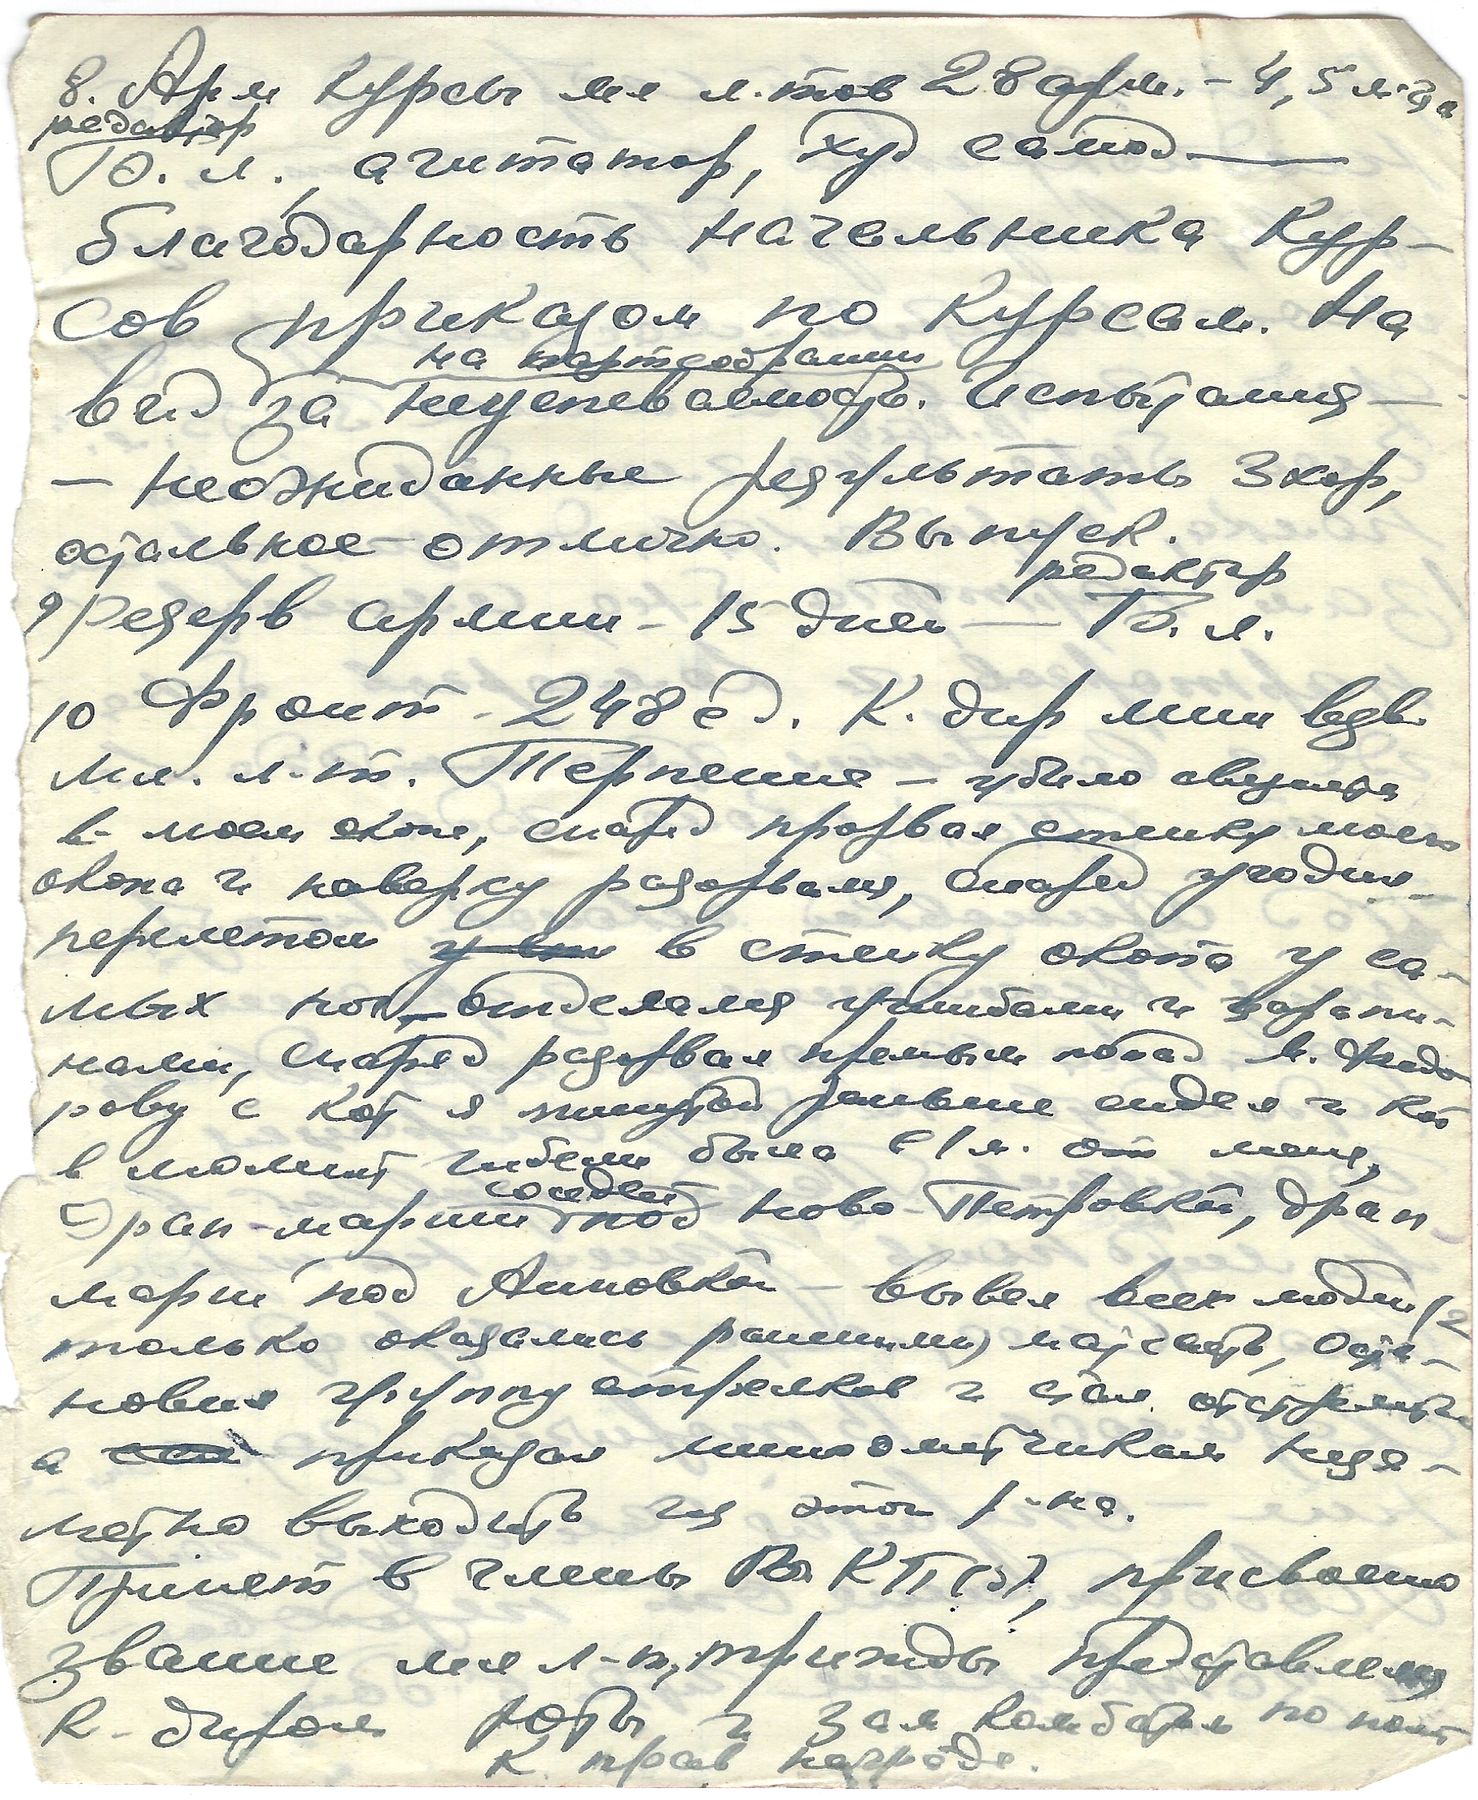 8. Арм курсы мл л-тов 28 арм. – 4,5 м-ца
редактор
Б. л., агитатор, худ самод —
благодарность начальника кур-
сов приказом по курсам. На
на партсобрании
вид за неуспеваемость. Испытания —
— неожиданные результаты 3 хор,
остальное – отлично. Выпуск.
редактор
9) Резерв армии – 15 дней — Б. л.
10 Фронт – 248 сд. К. дир мин взв.
мл. л-т. Терпение – убило
в моем окопе, снаряд прорвал стенку моего
окопа и наверху разорвался, снаряд угодил
перелетом в стенку окопа у са-
мых ног – отделался ушибами и царапи-
нами, снаряд разорвал прямым попад м. Федо
рову с кот я минутой раньше сидел и кот
в момент гибели был в 1 м. от меня,
соседей
Драп-марш под Ново-Петровкой, драп
марш под Ановкой – вывел всех людей (2
только оказались ранеными) матчасть, оста-
новил группу стрелков и стал отстрелив
а приказал минометчикам неза-
метно выходить из этого р-на.
Принят в члены ВКП(б), присвоено
звание мл л-т, трижды представлялся
к-диром роты и зам комбатом по полит
к прав награде.